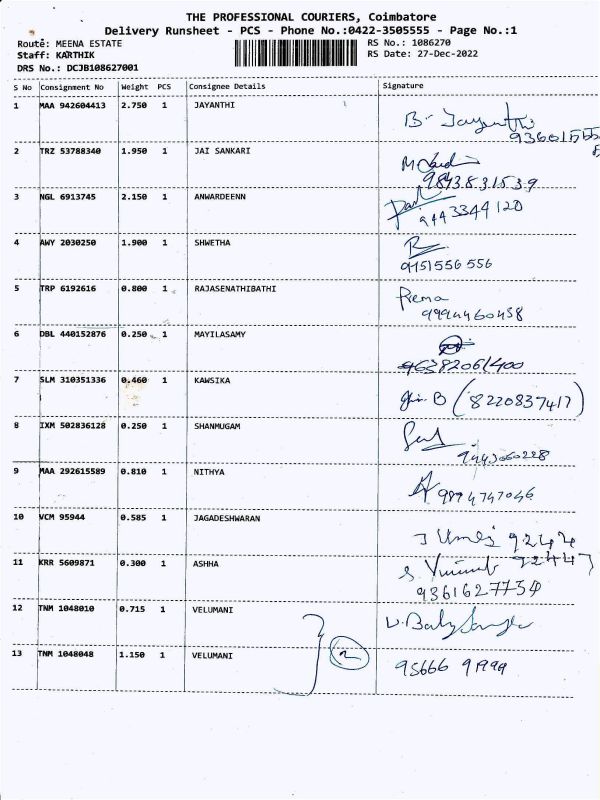 THE PROFESSIONAL COURIERS, Coimbatore
Delivery Runsheet - PCS - Phone No.:0422-3505555 - Page No.:1
Route: MEENA ESTATE RS No.: 1086270
Staff: KARTHIK RS Date: 27-Dec-2022
DRS No.: DCJB108627001
S No Consignment No Weight PCS Consignee Details Signature
1 MAA 942604413 2.750 1 JAYANTHI
B. Jayanthi
2 TRZ 53788340 1.950 1 JAI SANKARI
9843831539
3 NGL 6913745 2.150 1 ANWARDEENN
9443344120
4 AWY 2030250 1.900 1 SHWETHA
9151556556
5 TRP 6192616 0.800 1 RAJASENATHIBATHI
Prema
9994460458
6 DBL 440152876 0.250 1 MAYILASAMY
7 SLM 310351336 0.460 1 KAWSIKA
B (8220837417)
8 IXM 502836128 0.250 1 SHANMUGAM
9443060228
9 MAA 292615589 0.810 1 NITHYA
9894747046
10 VCM 95944 0.585 1 JAGADESHWARAN
11 KRR 5609871 0.300 1 ASHHA
9361627734
12 TNM 1048010 0.715 1 VELUMANI
13 TNM 1048048 1.150 1 VELUMANI
2